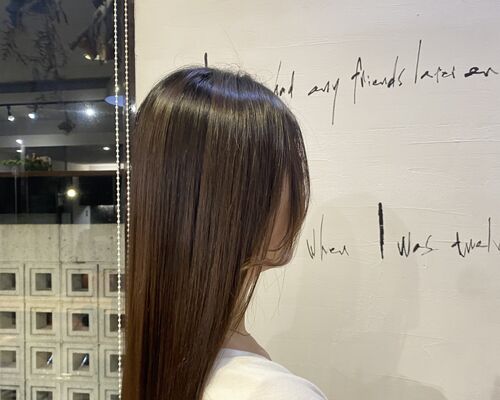 had any friends later on
When I was twelve